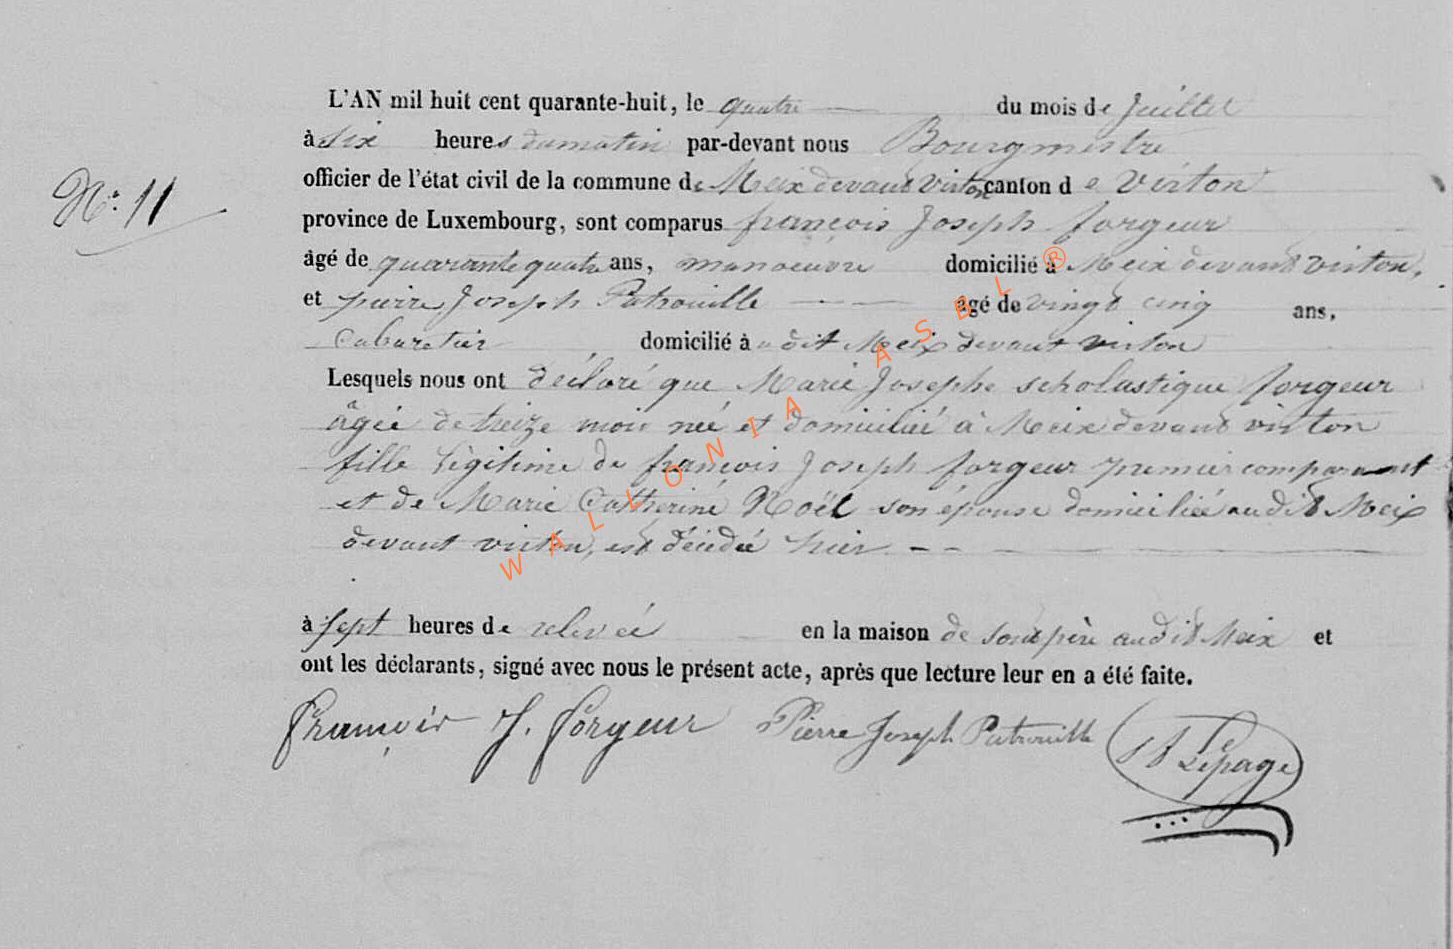 L'AN mil huit cent quarante-huit, le quatre du mois de Juillet
à six heures du matin par-devant nous Bourgmestre
N.º 11
officier de l'état civil de la commune de Meix devant Virton canton de Virton
province de Luxembourg, sont comparus françois Joseph forgeur
âgé de quarante quatre ans, manoeuvre domicilié à Meix devant virton,
et pierre Joseph Patrouille agé de vingt cinq ans,
Cabaretier domicilié à udit Meix devant virton
Lesquels nous ont déclaré que Marie Josephe scholastique forgeur
âgée de treize mois née et domiciliée à Meix devant virton
fille légitime de françois Joseph forgeur premier comparant
et de Marie Catherine Noël son épouse domiciliée audit Meix
devant virton, est décédée hier
à sept heures de relevée en la maison de son père audit Meix et
ont les déclarants, signé avec nous le présent acte, après que lecture leur en a été faite.
François J. forgeur Pierre Joseph Patrouille Lepage
WALLONIA ASBL ®